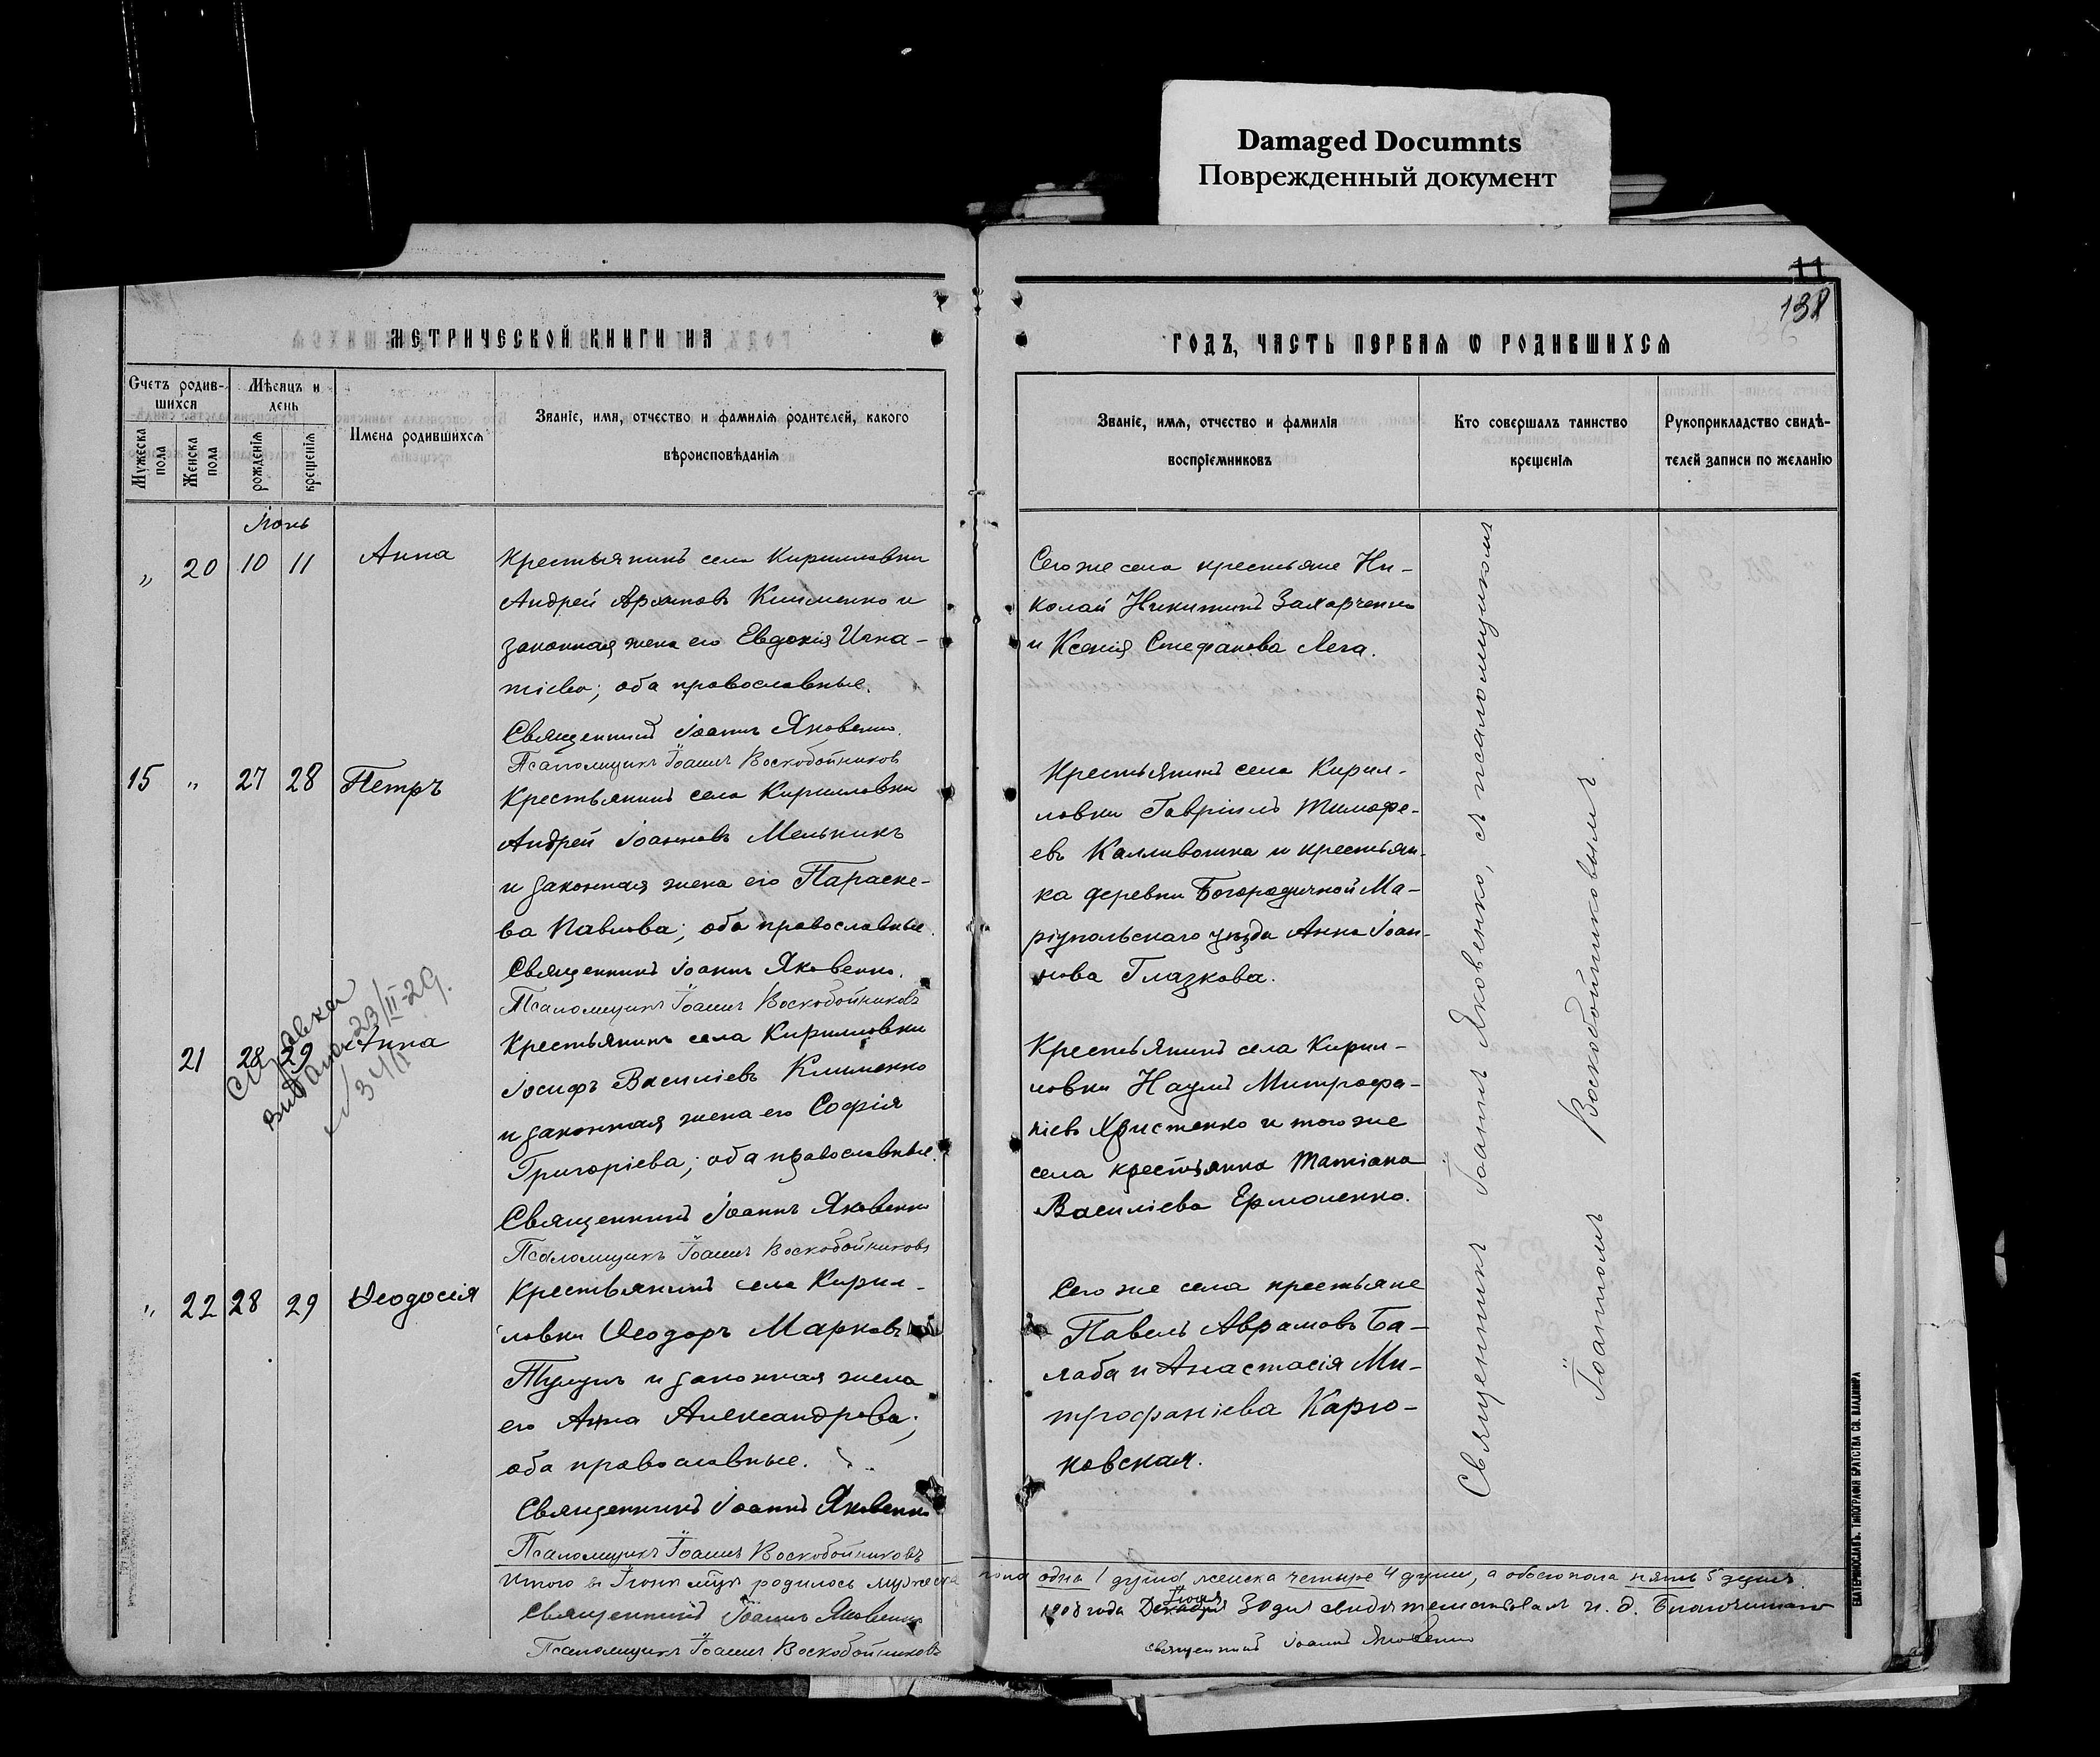 Damaged Documnts
Поврежденный документ
11
138
МЕТРИЧЕСКОЙ КНИГИ НА
ГОДЪ, ЧАСТЬ ПЕРВАЯ Ѡ РОДИВШИХСЯ
Счетъ родив-
шихся
Мужеска
пола
Женска
пола
Мѣсяцъ и
день
рожденія
крещенія
Имена родившихся
Званіе, имя, отчество и фамилія родителей, какого
вѣроисповѣданія
Званіе, имя, отчество и фамилія
воспріемниковъ
Кто совершалъ таинство
крещенія
Рукоприкладство свидѣ-
телей записи по желанію
Іюнь
„ 20 10 11 Анна
Крестьянинъ села Кирилловки
Андрей Архиповъ Клименко и
законная жена его Евдокія Игна-
тіева; оба православные.
Священникъ Іоаннъ Яковенко.
Псаломщикъ Іоаннъ Воскобойниковъ
Сего же села крестьяне Ни-
колай Никитинъ Захарченко
и Ксенія Стефанова Лега.
15 „ 27 28 Петръ
Крестьянинъ села Кирилловки
Андрей Іоанновъ Мельникъ
и законная жена его Параске-
ва Павлова; оба православные.
Священникъ Іоаннъ Яковенко.
Псаломщикъ Іоаннъ Воскобойниковъ
Крестьянинъ села Кирил-
ловки Гавріилъ Тимофе-
евъ Калливошка и крестьян-
ка деревни Богородичной Ма-
ріупольскаго уѣзда Анна Іоан-
нова Глазкова.
Справка
видана 23/II-29.
21 28 29 Анна
Крестьянинъ села Кирилловки
Іосифъ Василіевъ Клименко
и законная жена его Софія
Григоріева; оба православные.
Священникъ Іоаннъ Яковенко
Псаломщикъ Іоаннъ Воскобойниковъ
Крестьянинъ села Кирил-
ловки Наумъ Митрофа-
ніевъ Христенко и того же
села крестьянка Татіана
Василіева Ермоленко.
„ 22 28 29 Ѳеодосія
Крестьянинъ села Кирил-
ловки Ѳеодоръ Марковъ
и законная жена
его Анна Александрова;
оба православные.
Священникъ Іоаннъ Яковенко
Псаломщикъ Іоаннъ Воскобойниковъ
Сего же села крестьяне
Павелъ Аврамовъ Ба-
лаба и Анастасія Ми-
трофаніева Карпо-
ковская.
Священникъ Іоаннъ Яковенко, съ псаломщикомъ
Іоанномъ Воскобойниковымъ.
Итого въ Іюнѣ мцѣ родилось мужеска пола одна 1 душа женска четыре 4 души, а обоего пола пять 5 душъ.
Священникъ Іоаннъ Яковенко
Псаломщикъ Іоаннъ Воскобойниковъ
1908 года Іюля 30 дня свидѣтельствовалъ и. д. Благочиннаго
Священникъ Іоаннъ Яковенко
ЕКАТЕРИНОСЛАВЪ. ТИПОГРАФІЯ БРАТСТВА СВ. ВЛАДИМІРА